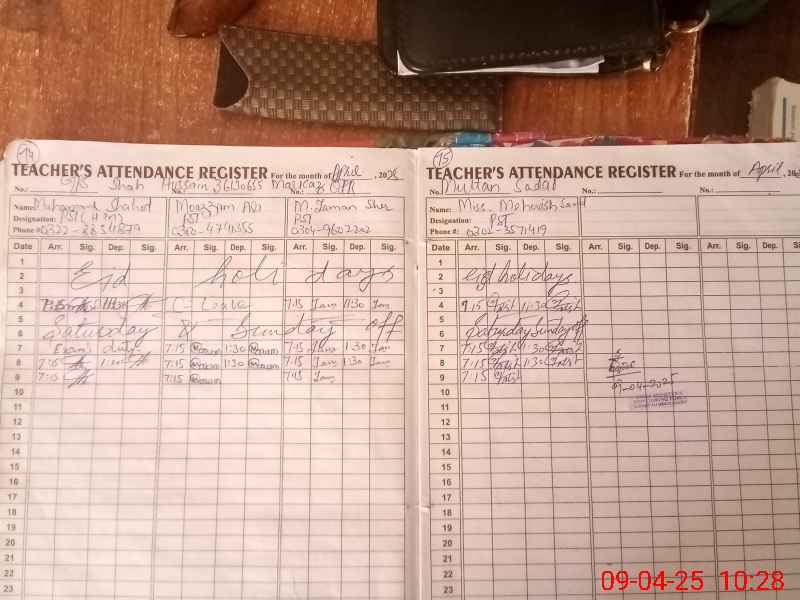 14
TEACHER'S ATTENDANCE REGISTER For the month of April, 20
No.: Shah Hussain No.:
Name: Muhammad Shahid
Designation: PST (H.M)
Phone #: 0322-8854879
Moazzam Ali
PST
0300-4741355
M. Zaman Sher
PST
0304-9602202
Date Arr. Sig. Dep. Sig. Arr. Sig. Dep. Sig. Arr. Sig. Dep. Sig.
1
2 Eid holidays
3
4 11:30 C-Leave 7:15 11:30
5
6 Saturday & Sunday off
7 Exam duty 7:15 1:30 7:15 1:30
8 7:15 1:30 7:15 1:30 7:15 1:30
9 7:15 7:15 7:45
10
11
12
13
14
15
16
17
18
19
20
21
22
23
15
TEACHER'S ATTENDANCE REGISTER For the month of April, 20
No. Multan Sadar No.: No.:
Name: Miss. Mehwish
Designation: PST
Phone #: 0302-3571419
Date Arr. Sig. Dep. Sig. Arr. Sig. Dep. Sig. Arr. Sig.
1
2 Eid holidays
3
4 7:15 11:30
5
6 Saturday Sunday off
7 7:15 1:30
8 7:15 1:30
9 7:15
09-04-2025
10
11
12
13
14
15
16
17
18
19
20
21
22
23
09-04-25 10:28